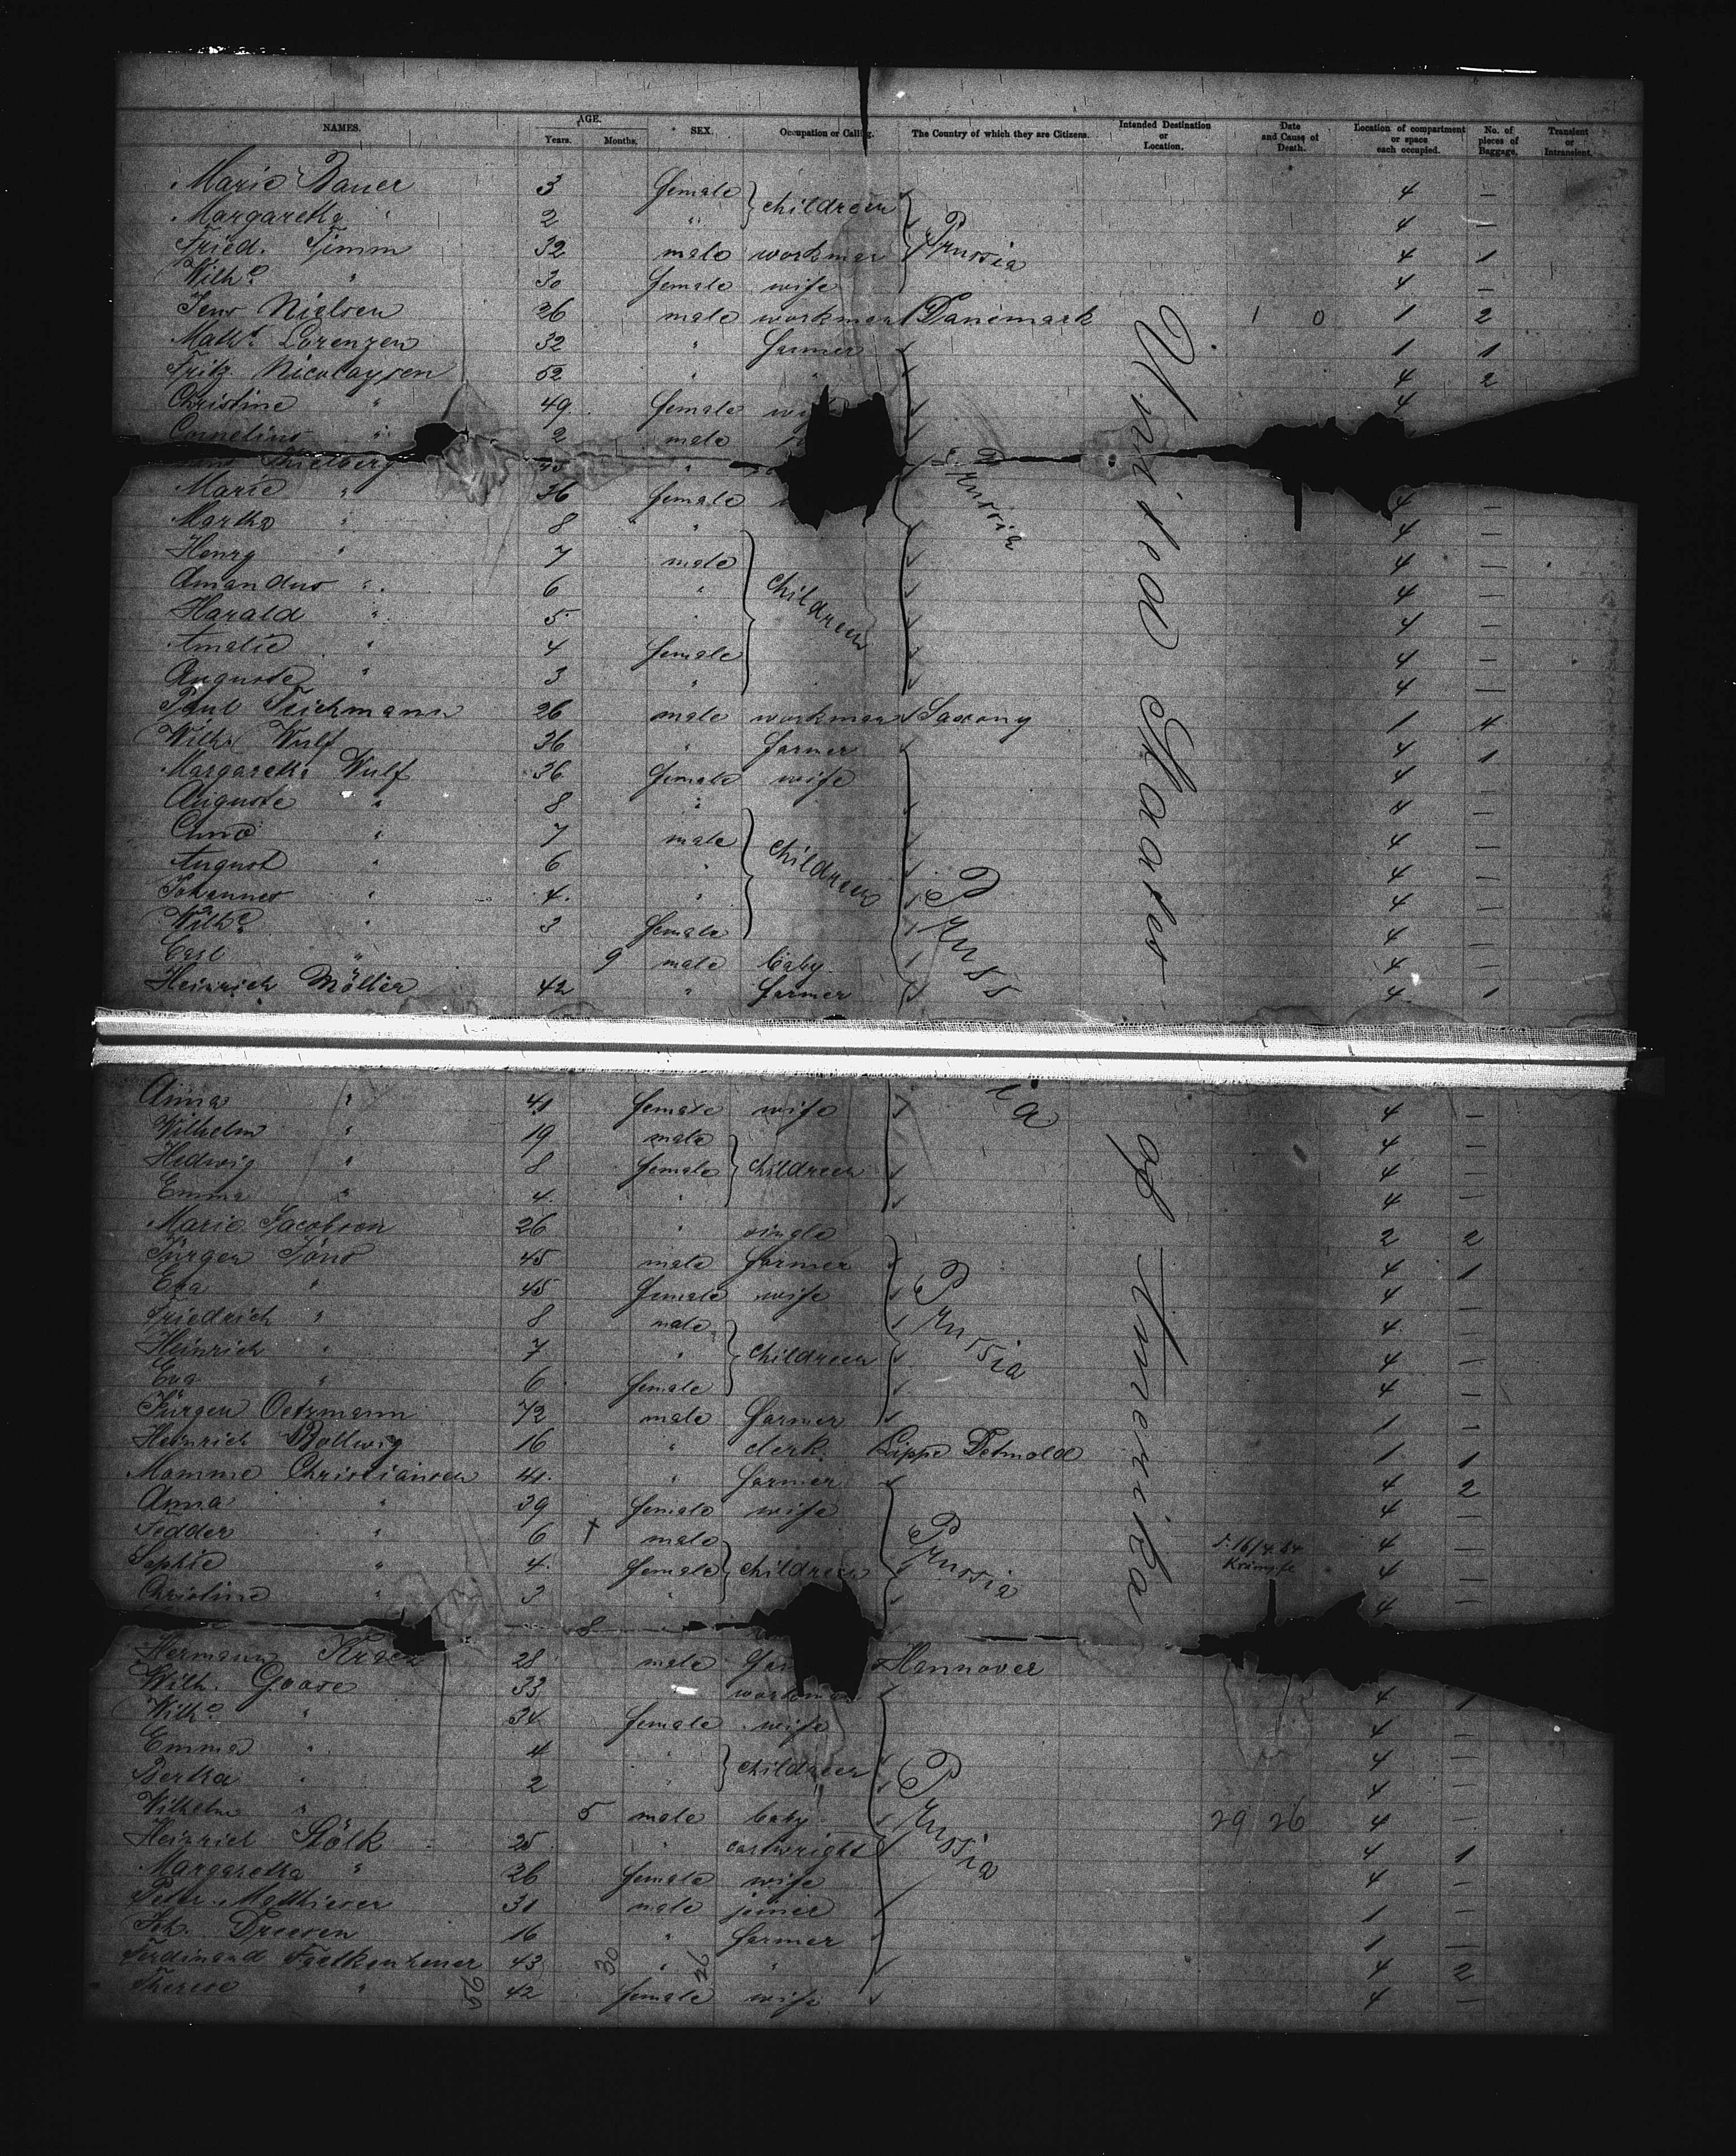 NAMES. AGE. Years. Months. SEX. Occupation or Calling. The Country of which they are Citizens. Intended Destination or Location. Date and Cause of Death. Location of compartment or space each occupied. No. of pieces of Baggage. Transient or Intransient.
Marie Bauer 3 female childreen 4 —
Margaretha " 2 " 4 —
Fried. Timm 32 male workman Prussia 4 1
Wilhe " 30 female wife 4 —
Jens Nielsen 26 male workman Danemark 1 0 1 2
Math. Lorenzen 32 " farmer 1 1
Fritz Nicolaysen 52 " " 4 2
Christine " 49 female 4
Cornelius " 2 male
Thielberg 45 " Prussia
Marie " 36 female 4 —
Martha " 8 " 4 —
Henry " 7 male childreen 4 —
Amandus " 6 " 4 —
Harald " 5 " 4 —
Amalie " 4 female 4 —
Auguste " 3 " 4 —
Paul Teichmann 26 male workman Saxony 1 4
Wilh. Wulf 36 " farmer 4 1
Margareth. Wulf 36 female wife 4 —
Auguste " 8 " 4 —
" 7 male childreen 4 —
August " 6 " 4 —
Johannes " 4 " Prussia 4 —
Wilhe " 3 female 4 —
Carl " 9 male baby 4 —
Heinrich Möller 42 " farmer 4 1
United States of Amerika
Anna " 41 female wife 4 —
Wilhelm " 19 male childreen 4 —
Hedwig " 8 female 4 —
Emma " 4 " 4 —
Marie Jacobsen 26 " single 2 2
Jürgen Jöns 45 male farmer 4 1
Eva " 45 female wife Prussia 4 —
Friedrich " 8 male childreen 4 —
Heinrich " 7 " 4 —
Eva " 6 female 4 —
Jürgen Oetzmann 72 male farmer 1 —
Heinrich Bollwig 16 " clerk Lippe Detmold 1 1
Momme Christiansen 41 " farmer 4 2
Anna " 39 female wife 4 —
Fedder " 6 † male childreen Prussia 16/4.84 Krämpfe 4 —
Sophie " 4 female 4 —
Christine " 3 " 4 —
8
Hermann 28 male Hannover
Wilh. Goose 33 " workman 4 1
Wilhe " 34 female wife 4 —
Emma " 4 " childreen Prussia 4 —
Bertha " 2 " 4 —
Wilhelm " 5 male baby 29 26 4 —
Heinrich Stölk 25 " cartwright 4 1
Margaretha " 26 female wife 4 —
Peter Matthiesen 31 male joiner 1 —
Joh. Dreesen 16 " farmer 1 —
Ferdinand 43 30 " 26 " 4 2
Therese " 29 42 female wife 4 —